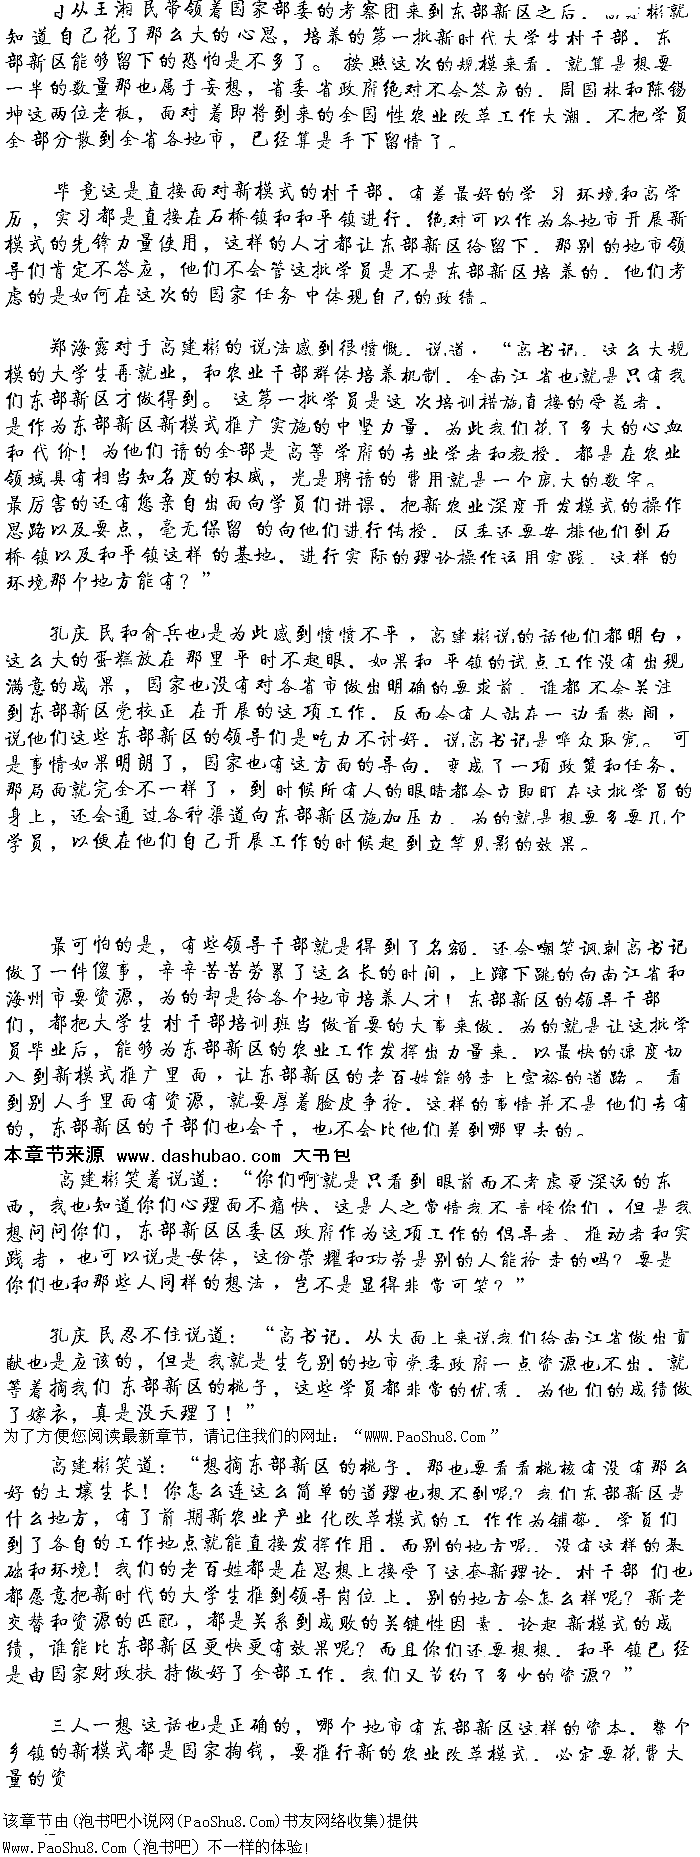 自从王湘民带领着国家部委的考察团来到东部新区之后。高建彬就
知道自己花了那么大的心思，培养的第一批新时代大学生村干部。东
部新区能够留下的恐怕是不多了。按照这次的规模来看。就算是想要
一半的数量那也属于妄想，省委省政府绝对不会答应的。周园林和陈锡
坤这两位老板，面对着即将到来的全国性农业改革工作大潮。不把学员
全部分散到全省各地市，已经算是手下留情了。
毕竟这是直接面对新模式的村干部。有着最好的学习环境和高学
历，实习都是直接在石桥镇和和平镇进行。绝对可以作为各地市开展新
模式的先锋力量使用，这样的人才都让东部新区给留下。那别的地市领
导们肯定不答应，他们不会管这批学员是不是东部新区培养的。他们考
虑的是如何在这次的国家任务中体现自己的政绩。
郑海露对于高建彬的说法感到很愤慨。说道，“高书记。这么大规
模的大学生再就业，和农业干部群体培养机制。全南江省也就是只有我
们东部新区才做得到。这第一批学员是这次培训措施直接的受益者。
是作为东部新区新模式推广实施的中坚力量。为此我们花了多大的心血
和代价！为他们请的全部是高等学府的专业学者和教授。都是在农业
领域具有相当知名度的权威，光是聘请的费用就是一个庞大的数字。
最厉害的还有您亲自出面向学员们讲课。把新农业深度开发模式的操作
思路以及要点，毫无保留的向他们进行传授。区委还要安排他们到石
桥镇以及和平镇这样的基地。进行实际的理论操作运用实践。这样的
环境那个地方能有？”
孔庆民和俞兵也是为此感到愤愤不平，高建彬说的话他们都明白，
这么大的蛋糕放在那里平时不起眼。如果和平镇的试点工作没有出现
满意的成果，国家也没有对各省市做出明确的要求前。谁都不会关注
到东部新区党校正在开展的这项工作。反而会有人站在一边看热闹，
说他们这些东部新区的领导们是吃力不讨好。说高书记是哗众取宠。可
是事情如果明朗了，国家也有这方面的导向。变成了一项政策和任务。
那局面就完全不一样了，到时候所有人的眼睛都会立即盯在这批学员的
身上，还会通过各种渠道向东部新区施加压力。为的就是想要多要几个
学员，以便在他们自己开展工作的时候起到立竿见影的效果。
最可怕的是，有些领导干部就是得到了名额。还会嘲笑讽刺高书记
做了一件傻事，辛辛苦苦劳累了这么长的时间，上蹿下跳的向南江省和
海州市要资源，为的却是给各个地市培养人才！东部新区的领导干部
们，都把大学生村干部培训班当做首要的大事来做。为的就是让这批学
员毕业后，能够为东部新区的农业工作发挥出力量来。以最快的速度切
入到新模式推广里面，让东部新区的老百姓能够走上富裕的道路。看
到别人手里面有资源，就要厚着脸皮争抢。这样的事情并不是他们专有
的，东部新区的干部们也会干，也不会比他们差到哪里去的。
本章节来源 www.dashubao.com 大书包
高建彬笑着说道：“你们啊就是只看到眼前而不考虑更深远的东
西，我也知道你们心理面不痛快。这是人之常情我不责怪你们，但是我
想问问你们，东部新区区委区政府作为这项工作的倡导者、推动者和实
践者，也可以说是母体，这份荣耀和功劳是别的人能抢走的吗？要是
你们也和那些人同样的想法，岂不是显得非常可笑？”
孔庆民忍不住说道：“高书记。从大面上来说我们给南江省做出贡
献也是应该的，但是我就是生气别的地市党委政府一点资源也不出。就
等着摘我们东部新区的桃子，这些学员都非常的优秀。为他们的成绩做
了嫁衣，真是没天理了！”
为了方便您阅读最新章节，请记住我们的网址：“WWW.PaoShu8.Com”
高建彬笑道：“想摘东部新区的桃子。那也要看看桃核有没有那么
好的土壤生长！你怎么连这么简单的道理也想不到呢？我们东部新区是
什么地方，有了前期新农业产业化改革模式的工作作为铺垫。学员们
到了各自的工作地点就能直接发挥作用。而别的地方呢。没有这样的基
础和环境！我们的老百姓都是在思想上接受了这套新理论。村干部们也
都愿意把新时代的大学生推到领导岗位上。别的地方会怎么样呢？新老
交替和资源的匹配，都是关系到成败的关键性因素。论起新模式的成
绩，谁能比东部新区更快更有效果呢？而且你们还要想想。和平镇已经
是由国家财政扶持做好了全部工作。我们又节约了多少的资源？”
三人一想这话也是正确的，哪个地市有东部新区这样的资本。整个
乡镇的新模式都是国家掏钱，要推行新的农业改革模式。必定要花费大
量的资
该章节由(泡书吧小说网(PaoShu8.Com)书友网络收集)提供
Www.PaoShu8.Com（泡书吧）不一样的体验！